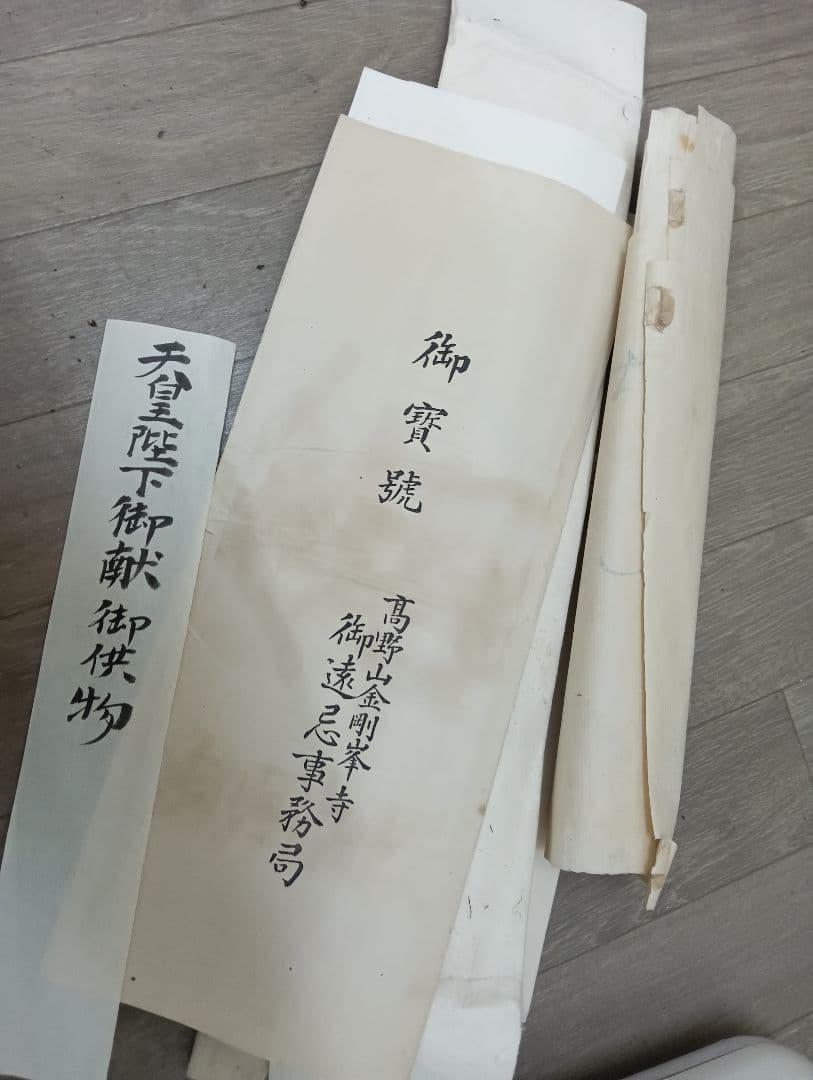 御寶號
高野山金剛峯寺
御遠忌事務局
天皇陛下御献御供物